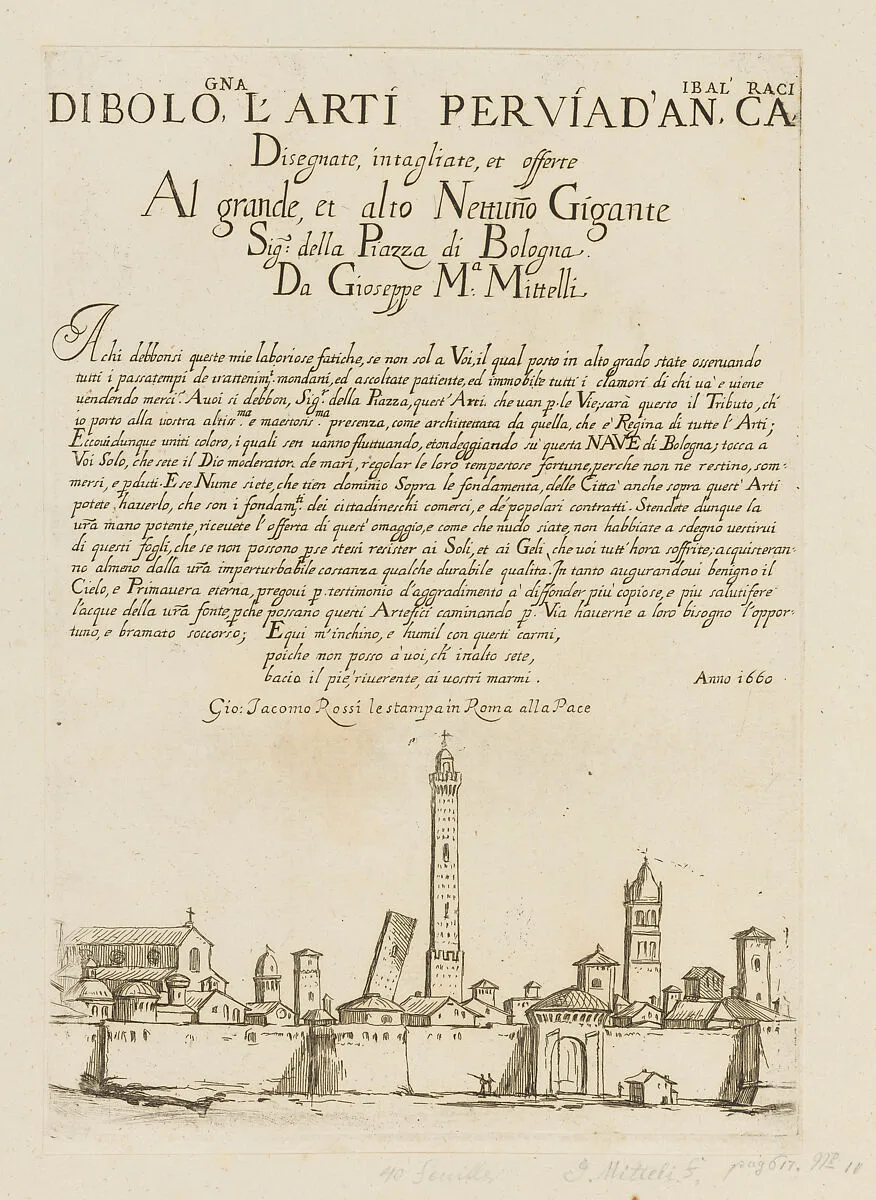 DI BOLOGNA, L'ARTÍ PER VÍA D'ANIBAL' CARACI
Disegnate, intagliate, et offerte
Al grande, et alto Nettuño Gigante
Sig.r della Piazza di Bologna.
Da Gioseppe M.a Mittelli
A chi debbonsi queste mie laboriose fatiche, se non sol a Voi, il qual posto in alto grado state osseruando
tutti i passatempi de trattenim.ti mondani, ed ascoltate patiente, ed immobile tutti i clamori di chi uà e uiene
uendendo merci? A uoi si debbon, Sig.r della Piazza, quest'Arti. che uan p. le Vie; sarà questo il Tributo, ch'
io porto alla uostra altiss.ma e maestosis.ma presenza, come architettata da quella, che e' Regina di tutte l'Arti;
Eccoui dunque uniti coloro, i quali sen uanno fluttuando, et ondeggiando sù questa NAVE di Bologna; tocca a
Voi Solo, che sete il Dio moderator de mari, regolar le loro tempestose fortune, perche non ne restino, som-
mersi, e p.duti. E se Nume siete, che tien dominio Sopra le fondamenta, delle Città anche sopra quest'Arti
potete hauerlo, che son i fondam.ti dei cittadineschi comerci, e de' popolari contratti. Stendete dunque la
ura mano potente, riceuete l'offerta di quest'omaggio, e come che nudo siate, non habbiate a sdegno uestirui
di questi fogli, che se non possono p se stessi resister ai Soli, et ai Geli, che uoi tutt'hora soffrite; acquisteran-
no almeno dalla ura imperturbabile costanza qualche durabile qualita. In tanto augurandoui benigno il
Cielo, e Primauera eterna, pregoui p. testimonio d'aggradimento à diffonder più copiose, e piu salutifere
l'acque della ura fonte, p che possano questi Artefici caminando p. Via hauerne a loro bisogno l'oppor-
tuno, e bramato soccorso; E qui m'inchino, e humil con questi carmi,
poiche non posso à uoi, ch' in alto sete,
bacio il piè, riuerente, ai uostri marmi. Anno 1660
Gio: Iacomo Rossi le stampa in Roma alla Pace
G. Mitteli f. pag 617. No 10